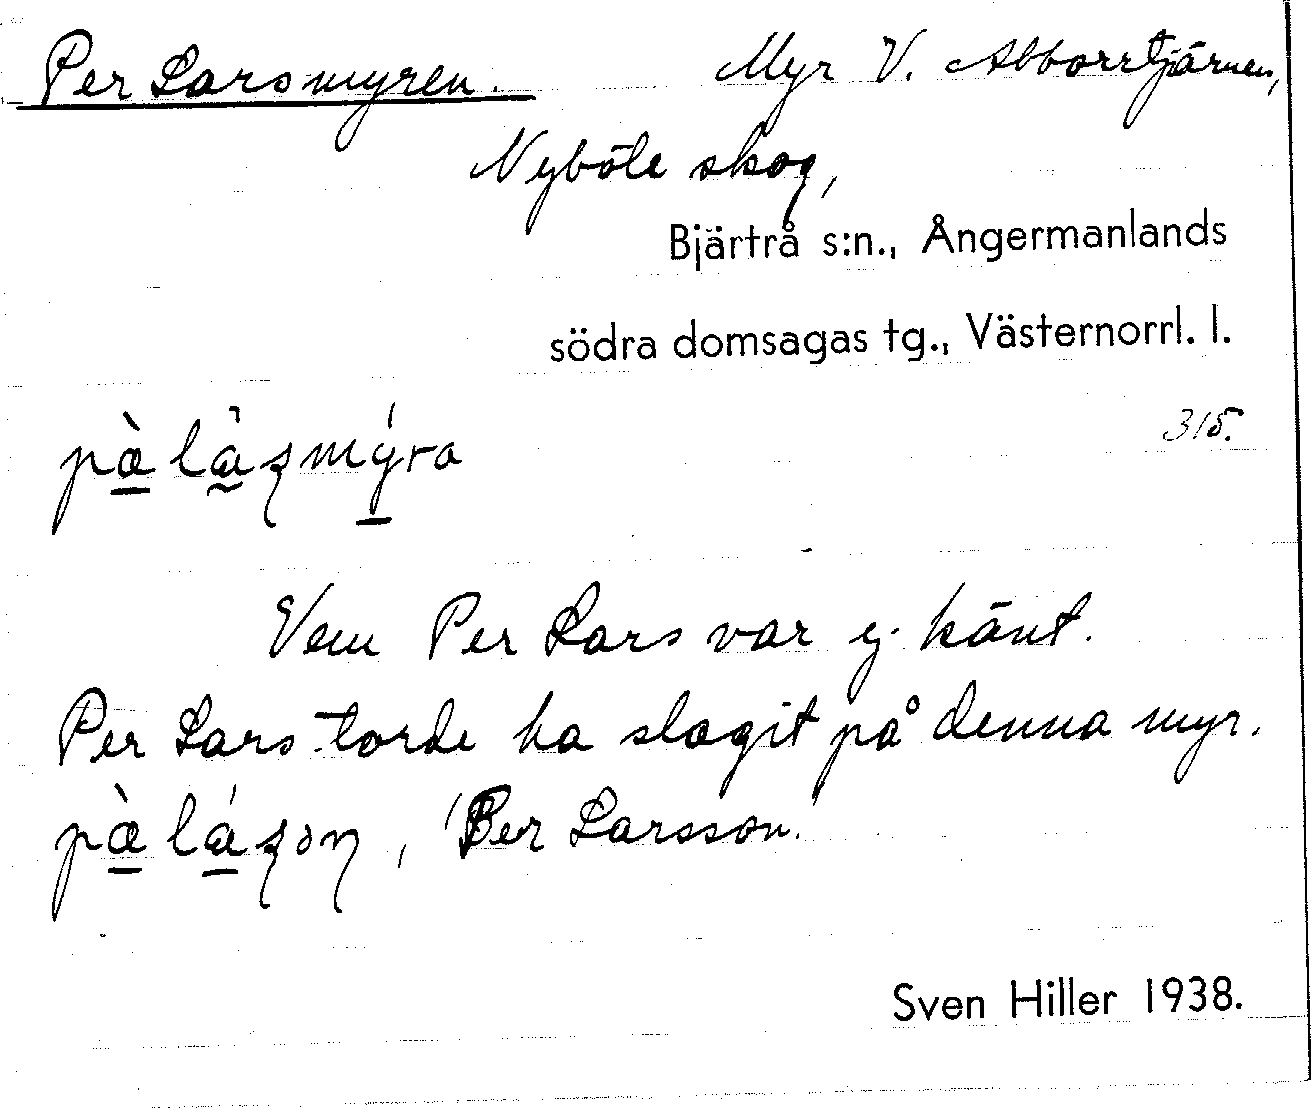 Per Larsmyren. Myr V. Abborrtjärnen,
Nyböle skog,
Bjärtrå s:n., Ångermanlands
södra domsagas tg., Västernorrl. l.
315.
pæ̀ làʂmýra
Vem Per Lars var ej känt.
Per Lars torde ha slagit på denna myr.
pæ̀ láʂoɳ, 'Per Larsson.'
Sven Hiller 1938.